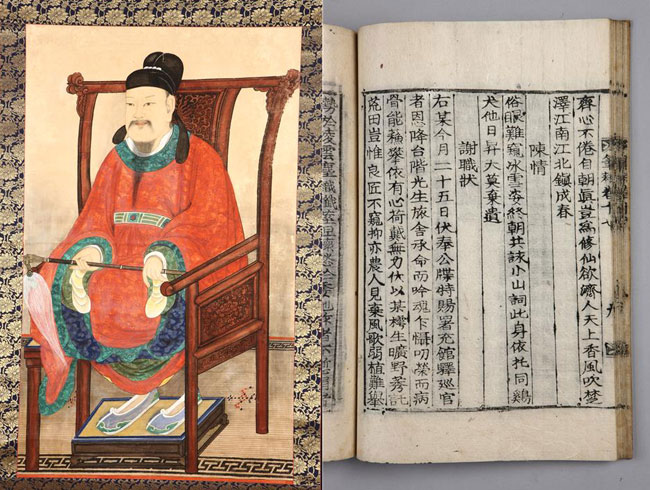 齊心不倦自朝眞豈爲修仙欲濟人天上香風吹楚
澤江南江北鎭成春
陳情
俗眼難窺氷雪姿終朝共詠小山詞此身依托同鷄
犬他日昇天莫棄遺
謝職狀
右某今月二十五日伏奉公牒特賜署充館驛巡官
者恩降台階光生旅舍承命而吟魂乍懾叨榮而病
骨能穌攀依有心荷戴無力伏以某樗生曠野莠託
荒田豈惟良匠不窺抑亦農人見棄風欺弱植難擧